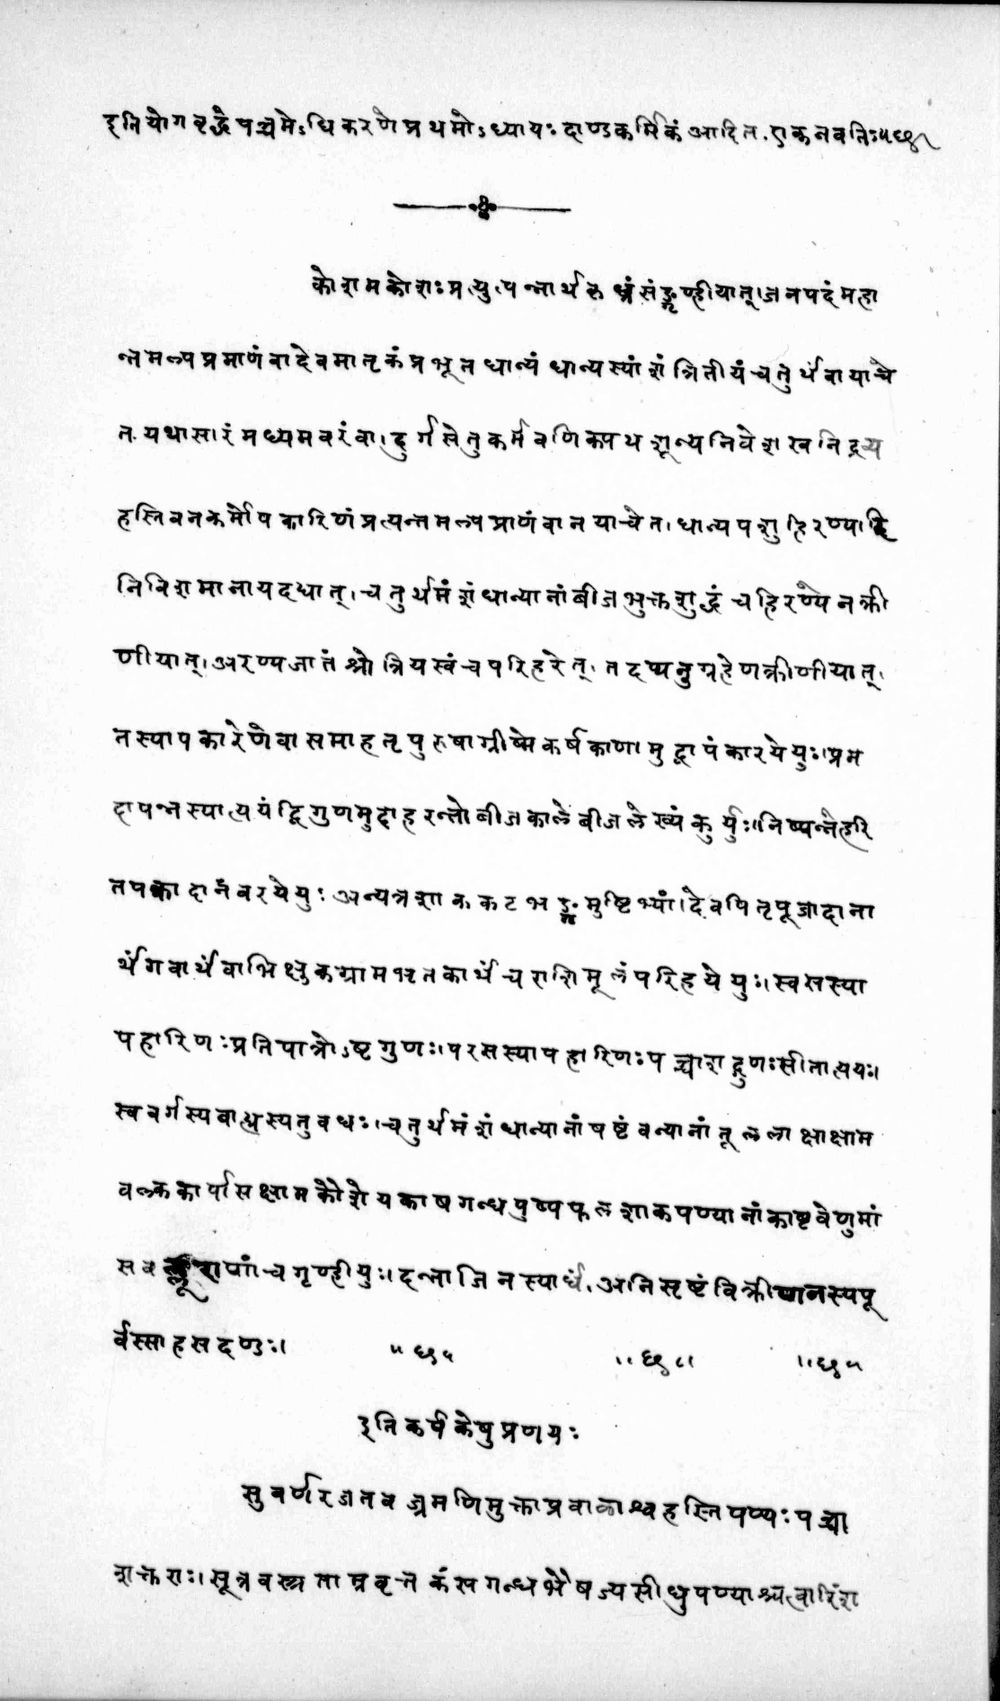 इति योगवृद्धे पञ्चमेऽधिकरणे प्रथमोऽध्यायः दाण्डकर्मिकं आदित. एकनवतिः॥छ॥
कोशमकोशः प्रत्युत्पन्नार्थरुछ्रं संङ्गृण्हीयात्। जनपदं महा
न्तमल्पप्रमाणं वादेवमातृकं प्रभूतधान्यं धान्यस्यांशं त्रितीयं चतुर्थं वा याचे
त. यथासारं मध्यमवरं वा। दुर्गसेतुकर्मवणिक्पथशून्यनिवेशखनिद्रव्य
हस्तिवनकर्मोपकारिणं प्रत्यन्तमल्पप्राणं वा न याचेत। धान्यपशुहिरण्यादि
निविशमानाय दधात्। चतुर्थमंशं धान्यानां बीजभुक्तशुद्धं च हिरण्येन क्री
णीयात्। अरण्यजातं श्रोत्रियस्वं च परिहरेत्। तदप्यनुग्रहेण क्रीणीयात्।
तस्यापकारेणे वा समाहतृपुरुषा ग्रीष्मे कर्षकाणामुद्वापं कारयेयुः। प्रम
दापन्नस्यात्ययं द्विगुणमुदाहरन्तो बीजकाले बीजलेख्यं कुर्युः। निष्पन्ने हरि
तपक्वादानं वरयेयुः अन्यत्र शाककटभङ्गमुष्टिभ्यां। देवपितृपूजादाना
र्थं गवार्थं वा भिक्षुकग्रामभृतकार्थं च राशिमूलं परिहयेयुः। स्वसस्या
पहारिणः प्रतिपात्रोऽष्टगुणः। परसस्यापहारिणः पञ्चाशद्गुणः सीतात्ययः।
स्ववर्गस्य बाह्यस्य तु वधः। चतुर्थमंशं धान्यानां षष्टं वन्यानां तूललाक्षाक्षाम
वल्ककार्पासक्षामकोशेयकाषगन्धपुष्पफलशाकपण्यानां काष्टवेणुमां
सवल्लूराणां च गृण्हीयुः। दन्ताजिनस्यार्धं. अनिसृष्टं विक्रीयानस्य पू
र्वस्साहसदण्डः। ॥छ॥ ॥छ॥ ॥छ॥
इति कर्षकेषु प्रणयः
सुवर्णरजतवज्रमणिमुक्ताप्रवालाश्वहस्तिपण्यः पञ्चा
शत्कराः। सूत्रवस्त्रताम्रवृत्तकंसगन्धभैषज्यसीधुपण्याश्चत्वारिंश